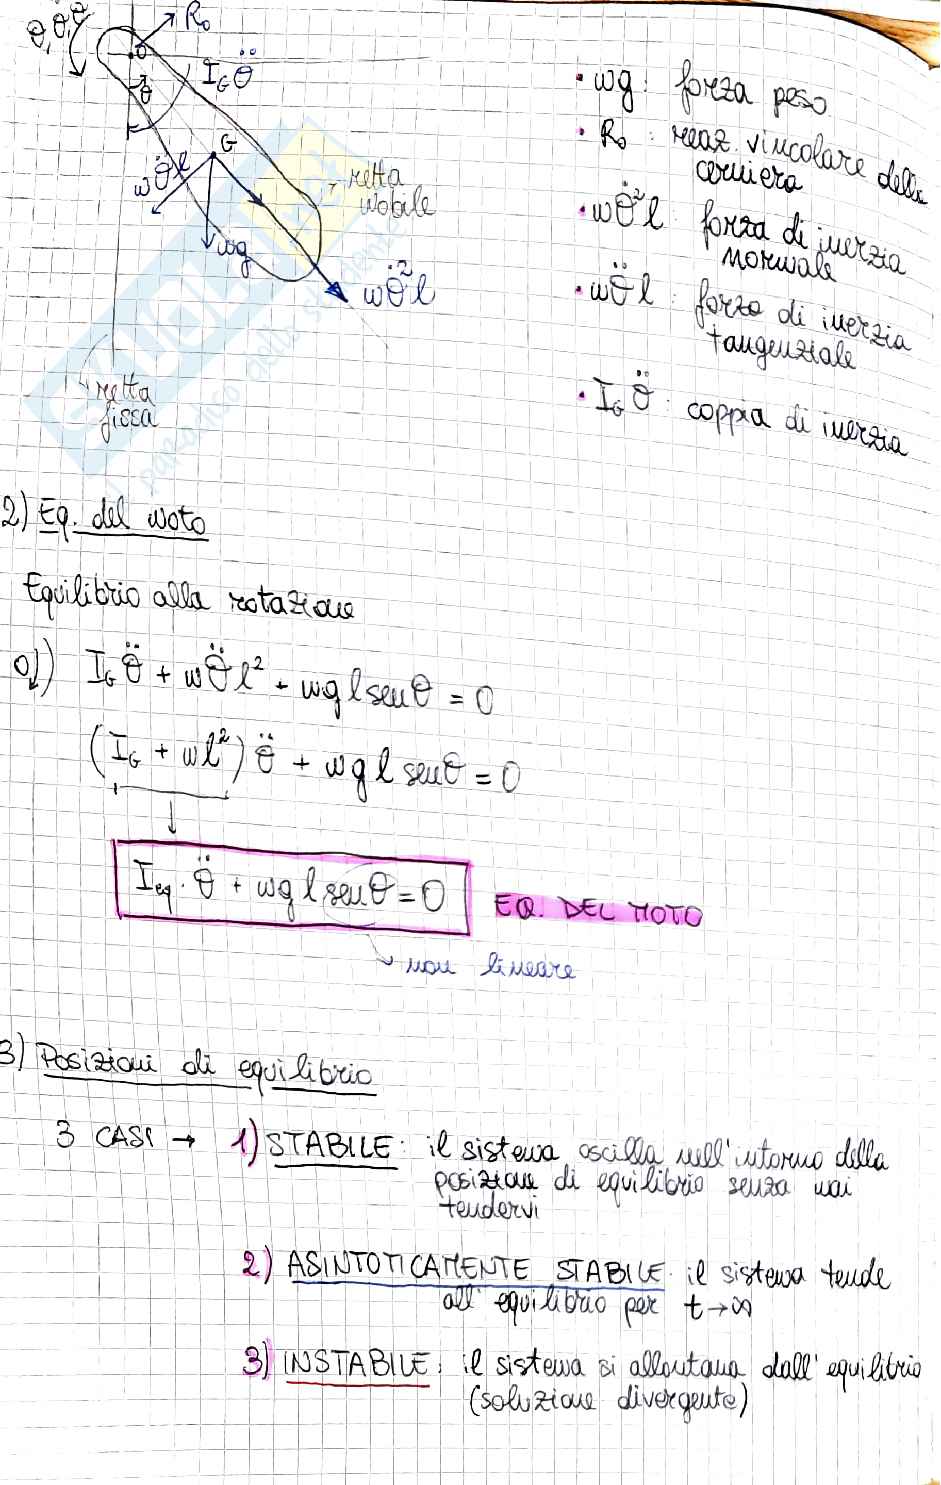 θ, θ̇, θ̈
R₀
O
I_G θ̈
θ
G
mθ̈l
mg
retta
mobile
mθ̇²l
retta
fissa
• mg : forza peso
• R₀ : reaz. vincolare della
cerniera
• mθ̇²l : forza di inerzia
normale
• mθ̈l : forza di inerzia
tangenziale
• I_G θ̈ : coppia di inerzia
2) Eq. del moto
Equilibrio alla rotazione
I_G θ̈ + mθ̈l² + mg l senθ = 0
(I_G + ml²) θ̈ + mg l senθ = 0
I_eq · θ̈ + mg l senθ = 0 EQ. DEL MOTO
non lineare
3) Posizioni di equilibrio
3 CASI → 1) STABILE : il sistema oscilla nell'intorno della
posizione di equilibrio senza mai
tendervi
2) ASINTOTICAMENTE STABILE : il sistema tende
all'equilibrio per t→∞
3) INSTABILE : il sistema si allontana dall'equilibrio
(soluzione divergente)